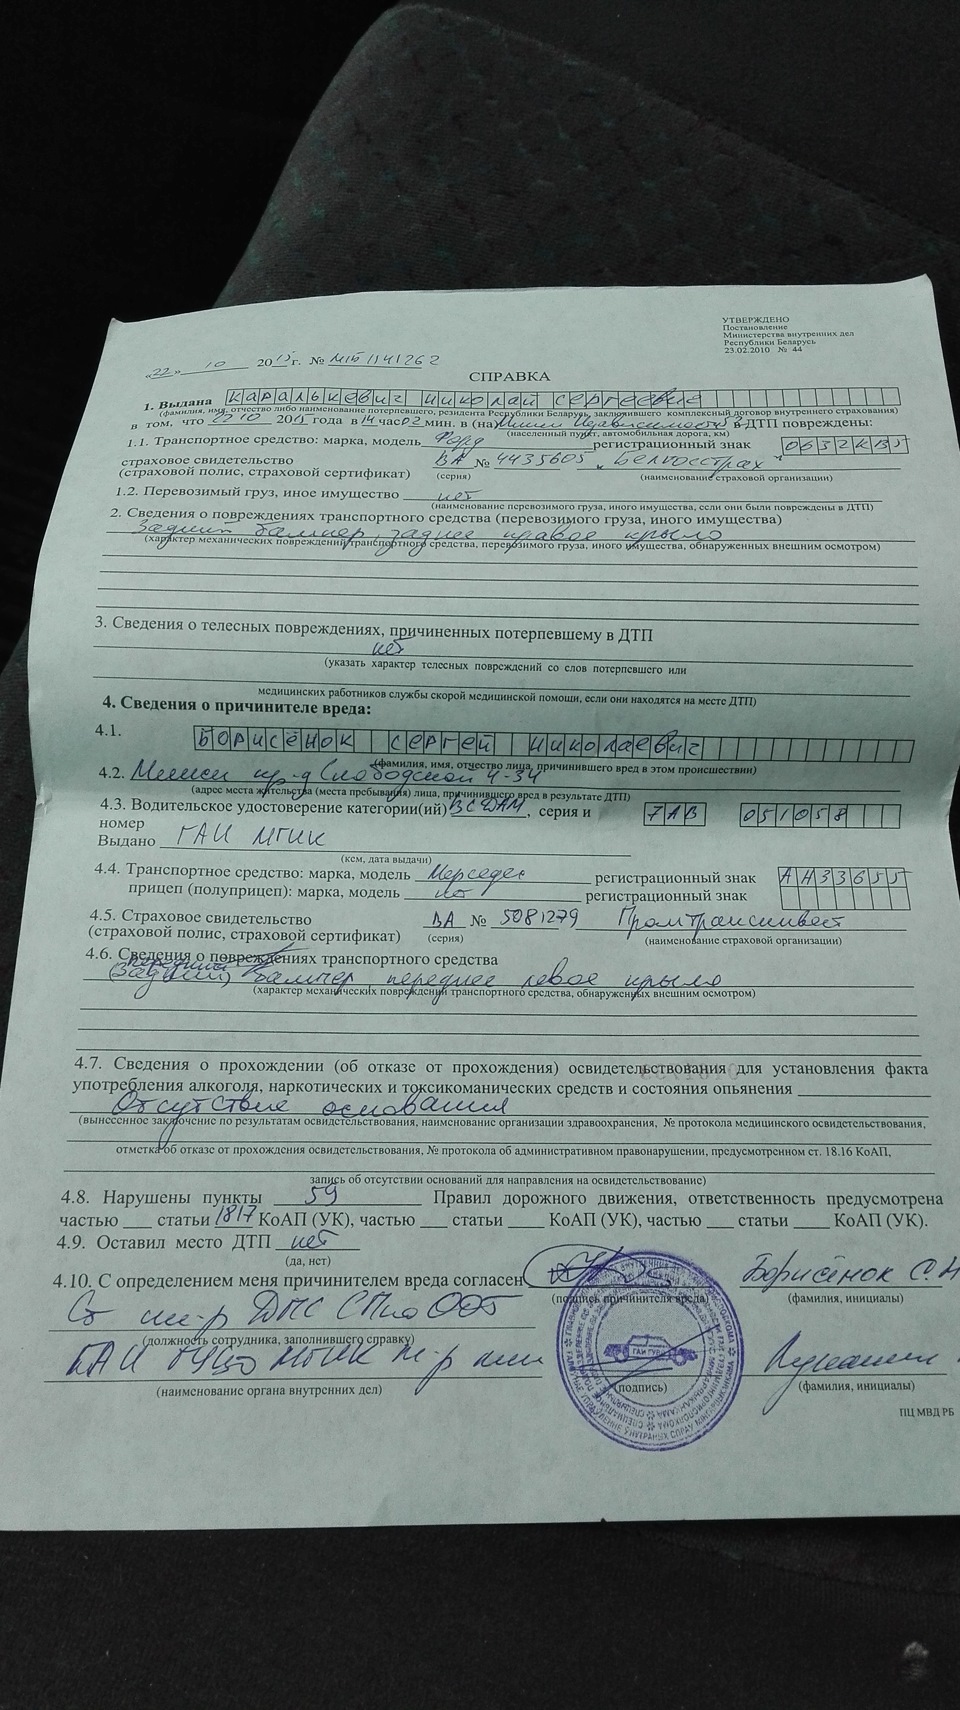 УТВЕРЖДЕНО
Постановление
Министерства внутренних дел
Республики Беларусь
23.02.2010 № 44
«22» 10 2015г. № МІБ 1141262
СПРАВКА
1. Выдана КАРАЛЬКЕВИЧ НИКОЛАЙ СЕРГЕЕВИЧ
(фамилия, имя, отчество либо наименование потерпевшего, резидента Республики Беларусь, заключившего комплексный договор внутреннего страхования)
в том, что 22 10 2015 года в 14 час 02 мин. в (на) Минск Независимости в ДТП повреждены:
(населенный пункт, автомобильная дорога, км)
1.1. Транспортное средство: марка, модель Форд регистрационный знак 0632КВ5
страховое свидетельство ВА № 4435605 „Белгосстрах“
(страховой полис, страховой сертификат) (серия) (наименование страховой организации)
1.2. Перевозимый груз, иное имущество нет
(наименование перевозимого груза, иного имущества, если они были повреждены в ДТП)
2. Сведения о повреждениях транспортного средства (перевозимого груза, иного имущества)
Задний бампер заднее правое крыло
(характер механических повреждений транспортного средства, перевозимого груза, иного имущества, обнаруженных внешним осмотром)
3. Сведения о телесных повреждениях, причиненных потерпевшему в ДТП
нет
(указать характер телесных повреждений со слов потерпевшего или
медицинских работников службы скорой медицинской помощи, если они находятся на месте ДТП)
4. Сведения о причинителе вреда:
4.1. БОРИСЁНОК СЕРГЕЙ НИКОЛАЕВИЧ
(фамилия, имя, отчество лица, причинившего вред в этом происшествии)
4.2. Минск пр-д Слободской 4-34
(адрес места жительства (места пребывания) лица, причинившего вред в результате ДТП)
4.3. Водительское удостоверение категории(ий) ВСДАМ, серия и 7АВ 051058
номер
Выдано ГАИ МГИК
(кем, дата выдачи)
4.4. Транспортное средство: марка, модель Мерседес регистрационный знак АН33655
прицеп (полуприцеп): марка, модель нет регистрационный знак
4.5. Страховое свидетельство ВА № 5081279 Промтрансинвест
(страховой полис, страховой сертификат) (серия) (наименование страховой организации)
4.6. Сведения о повреждениях транспортного средства
передний
(Задний) бампер переднее левое крыло
(характер механических повреждений транспортного средства, обнаруженных внешним осмотром)
4.7. Сведения о прохождении (об отказе от прохождения) освидетельствования для установления факта
употребления алкоголя, наркотических и токсикоманических средств и состояния опьянения
Отсутствие основания
(вынесенное заключение по результатам освидетельствования, наименование организации здравоохранения, № протокола медицинского освидетельствования,
отметка об отказе от прохождения освидетельствования, № протокола об административном правонарушении, предусмотренном ст. 18.16 КоАП,
запись об отсутствии оснований для направления на освидетельствование)
4.8. Нарушены пункты 59 Правил дорожного движения, ответственность предусмотрена
частью ___ статьи 1817 КоАП (УК), частью ___ статьи ____ КоАП (УК), частью ___ статьи ____ КоАП (УК).
4.9. Оставил место ДТП нет
(да, нет)
4.10. С определением меня причинителем вреда согласен Борисёнок С.Н
(подпись причинителя вреда) (фамилия, инициалы)
Ст ДПС
(должность сотрудника, заполнившего справку)
ГАИ
(наименование органа внутренних дел) (подпись) (фамилия, инициалы)
ГАИ ГУВД
ПЦ МВД РБ